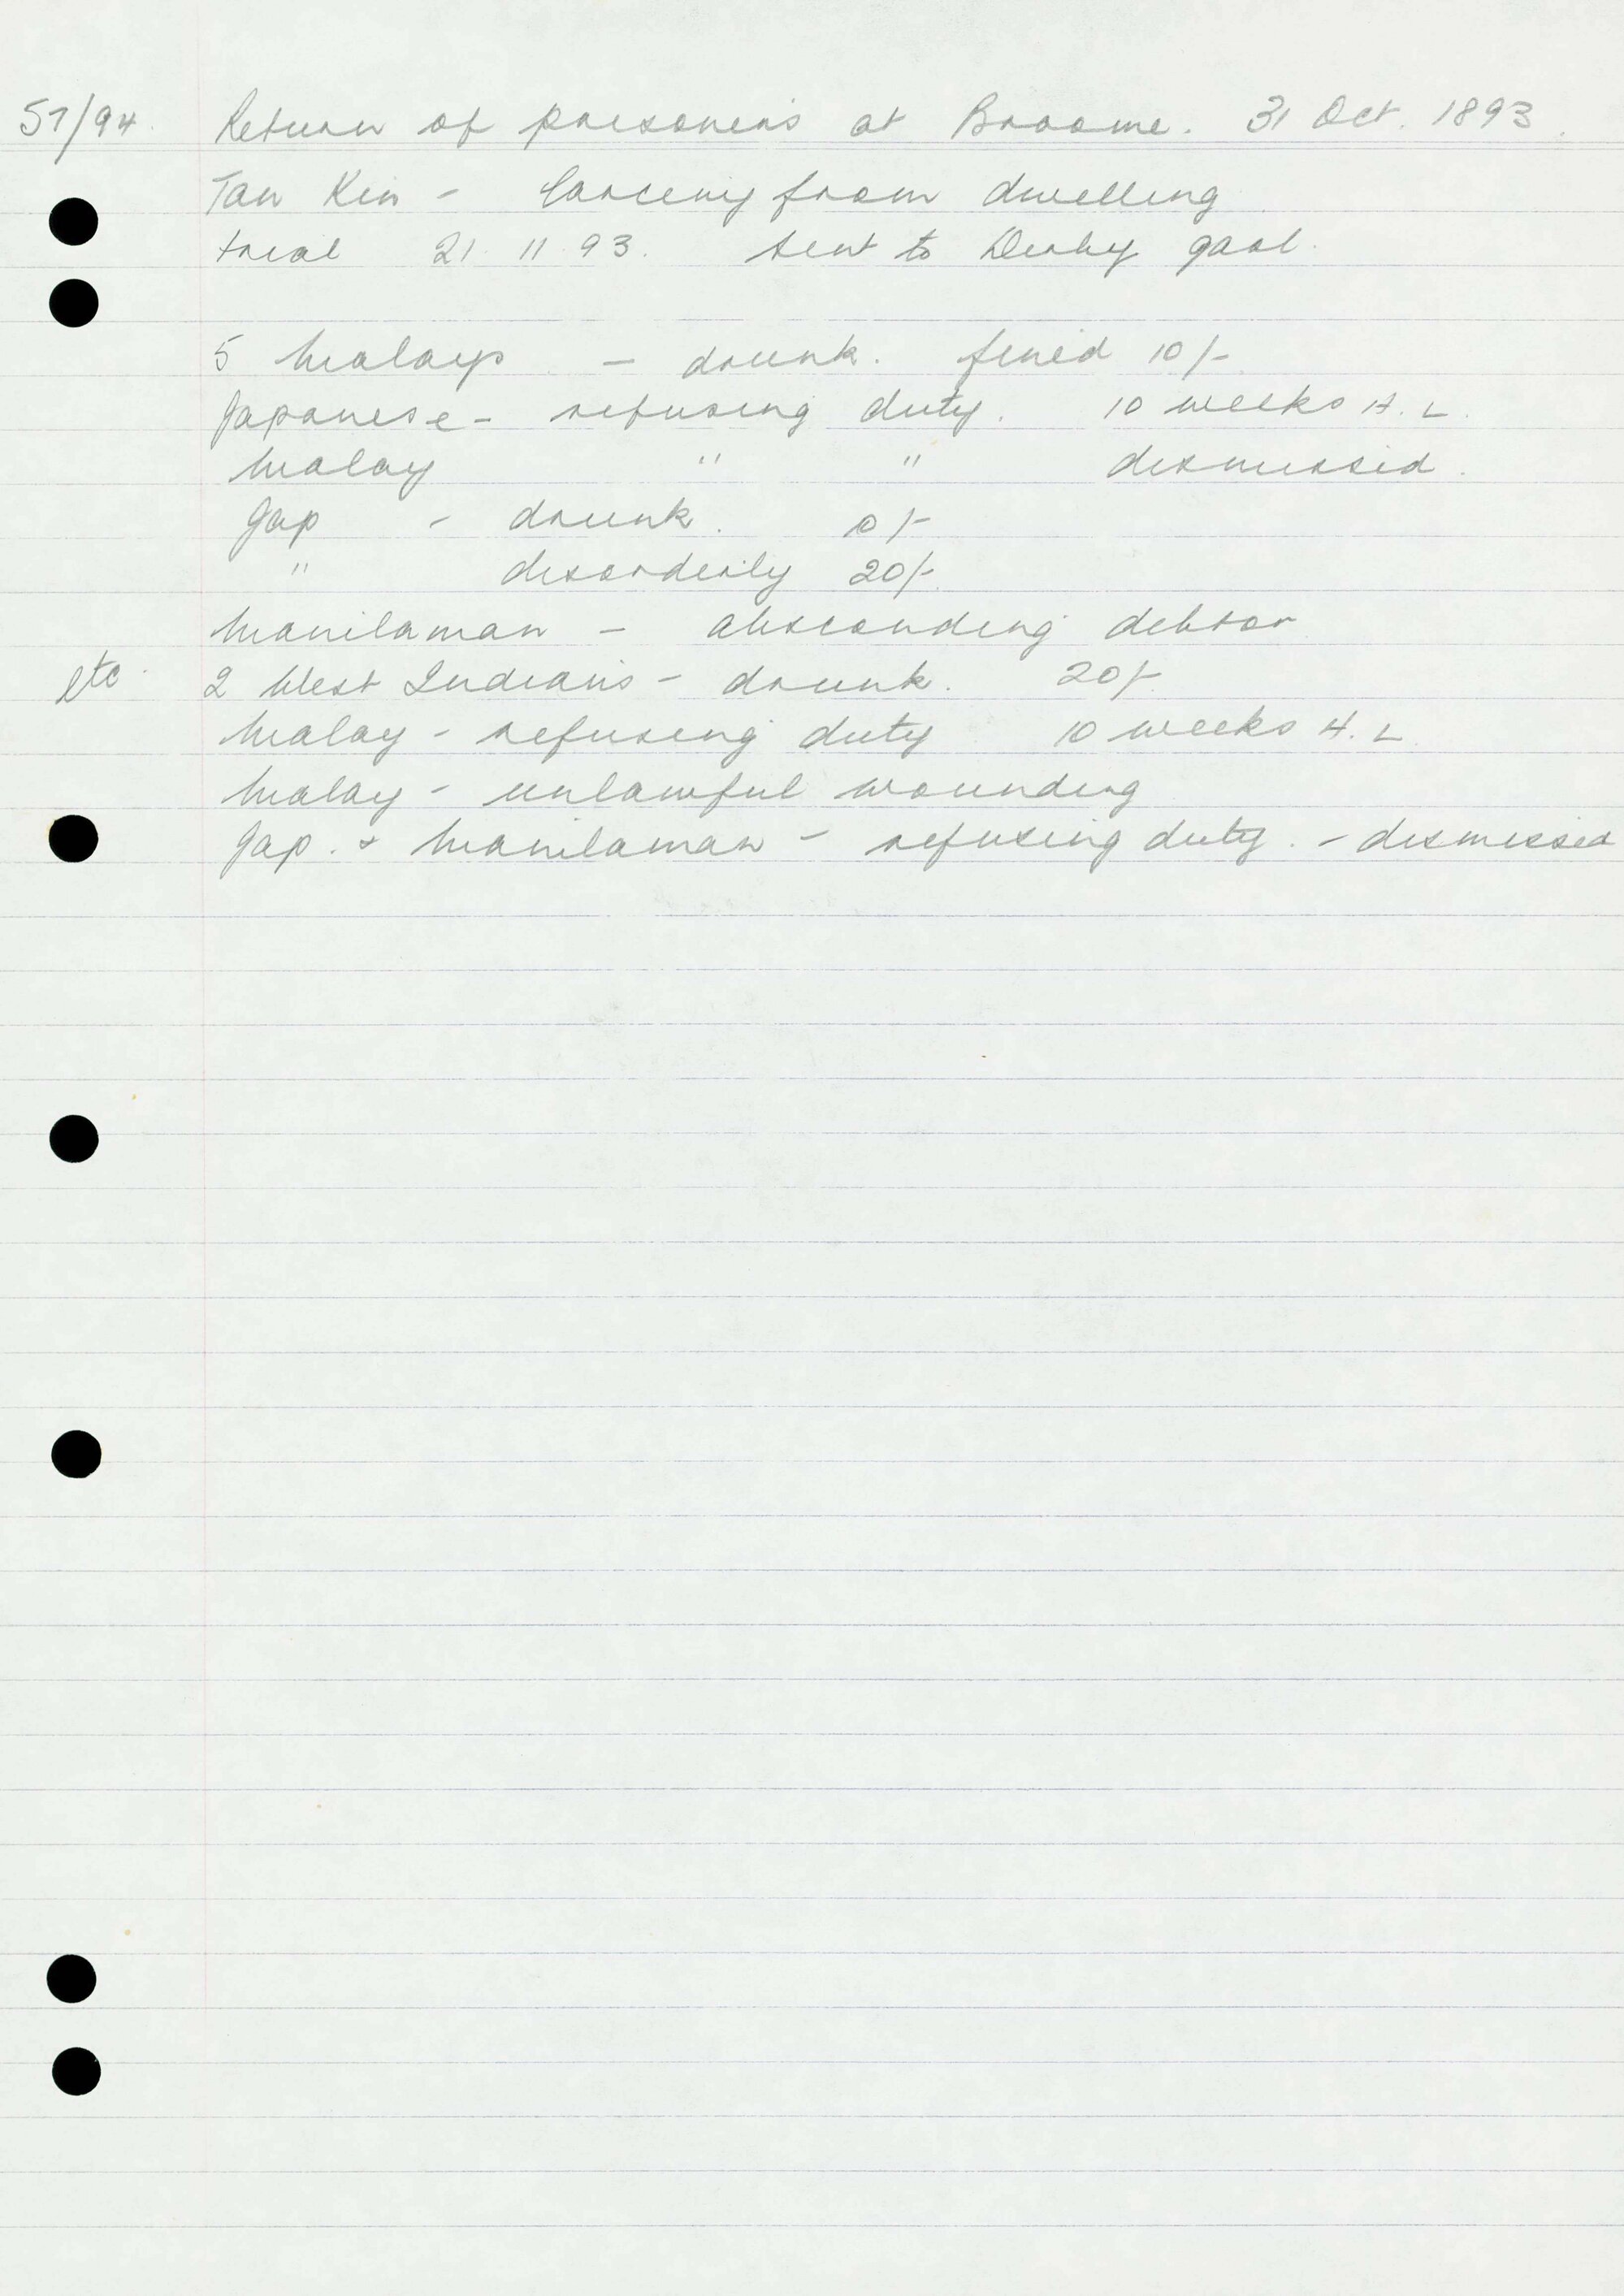 57/94. Return of prisoners at Broome. 31 Oct. 1893.
Tan Kin - larceny from dwelling
trial 21. 11. 93. sent to Derby gaol.
5 Malays - drunk. fined 10/-
Japanese - refusing duty. 10 weeks H. L.
Malay " " dismissed.
Jap - drunk. 10/-
" disorderly 20/-
Manilaman - absconding debtor
etc. 2 West Indians - drunk. 20/-
Malay - refusing duty 10 weeks H. L
Malay - unlawful wounding
Jap. & Manilaman - refusing duty. - dismissed